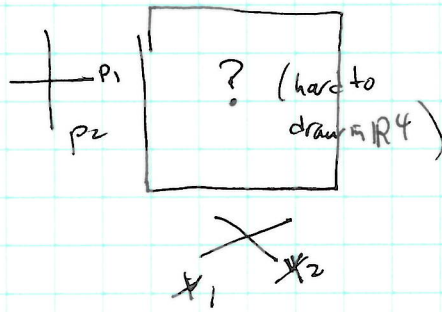 p1
p2
?
(hard to
draw in ℝ4)
x1
x2